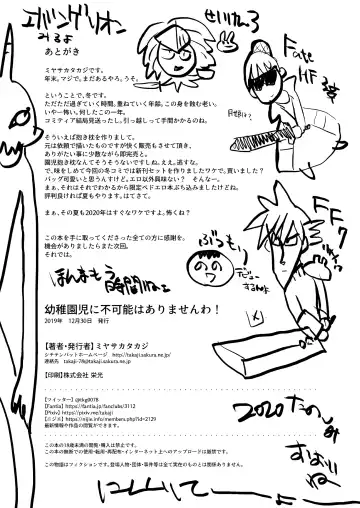 エバンゲリオン
みるよ
あとがき
ミヤサカタカジです。
年末。マジで。まだあるやろ。うそ。
ということで、冬です。
ただただ過ぎていく時間。重ねていく年齢。この身を蝕む老い。
いや一怖い。何したこの一年。
コミティア結局見送ったし。引っ越しって手間かかるのね。
そういえば抱き枕を作りまして。
元は依頼で描いたものですが快く販売もさせて頂き、
ありがたい事に少数ながら即完売と。
園児抱き枕なんてそうそうないですしね。ええ。逃すな。
で、味をしめて今回の冬コミでは新刊セットを作りましたワケで。買いました？
バッグ可愛いと思うんすけど。エロ以外興味ない？　そんなー。
まぁ、それはそれでわかるから限定ベドエロ本ぶち込みましたけどね。
評判良ければ夏もやります。はてさて。
まぁ、その夏も2020年はすぐなワケですよ。怖くね？
この本を手に取ってくださった全ての方に感謝を。
機会がありましたらまた次回。
それでは。
Fate
HF
FF7
ほんまもう時間ねぇ
幼稚園児に不可能はありませんわ！
2019年　12月30日　発行
【著者・発行者】ミヤサカタカジ
シチテンバットホームページ　http://takaji.sakura.ne.jp/
連絡先　takaji-78@takaji.sakura.ne.jp
【印刷】株式会社 栄光
【ツイッター】@tkg0078
【Fantia】https://fantia.jp/fanclubs/3112
【Pixiv】https://pixiv.me/takaji
【ニジエ】https://nijie.info/members.php?id=2129
最新情報や作品の閲覧ができます。
この本の18歳未満の閲覧・購入は禁止です。
この本の無断での使用・転用・再配布・インターネット上へのアップロードは厳禁です。
この物語はフィクションです。登場人物・団体・事件等は全て実在のものとは関係ありません。
2020たのしみ
すぎいね